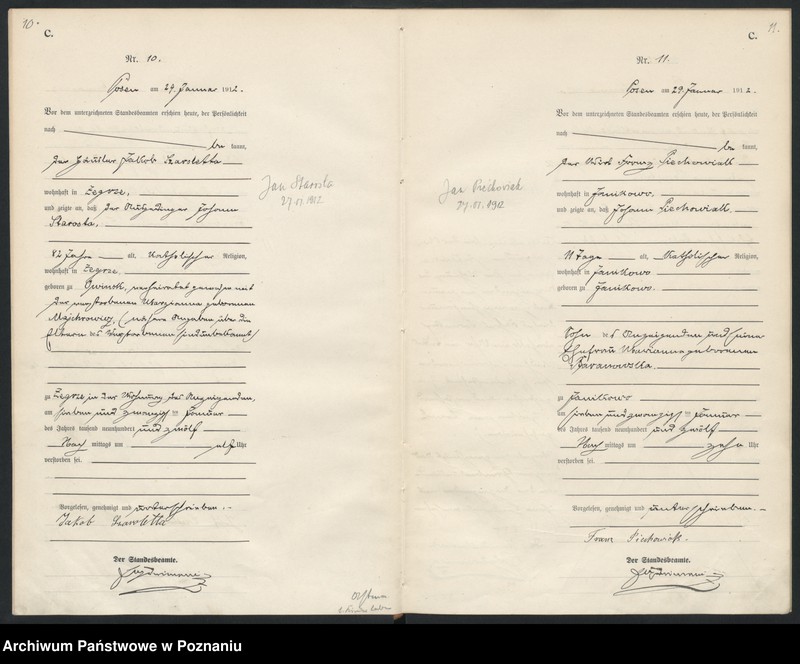 10.
C.
Nr. 10.
Posen am 29. Januar 1912.
Vor dem unterzeichneten Standesbeamten erschien heute, der Persönlichkeit
nach be kannt,
der Häusler Jakob
wohnhaft in Zegrze,
und zeigte an, daß der Johann
Starosta,
82 Jahre alt, katholischer Religion,
wohnhaft in Zegrze,
geboren zu verheiratet gewesen mit
der verstorbenen Marianna geborenen
(nähere Angaben über die
Eltern des Verstorbenen sind unbekannt)
zu Zegrze in der Wohnung des Anzeigenden,
am sieben und zwanzigsten Januar
des Jahres tausend neunhundert und zwölf
Nach mittags um elf Uhr
verstorben sei.
Vorgelesen, genehmigt und unterschrieben.
Jakob
Der Standesbeamte.
Jan Starosta
27.01.1912
11.
C.
Nr. 11.
Posen am 29. Januar 1912.
Vor dem unterzeichneten Standesbeamten erschien heute, der Persönlichkeit
nach be kannt,
der Wirt Franz Piechowiak
wohnhaft in Janikowo,
und zeigte an, daß Johann Piechowiak,
11 Tage alt, katholischer Religion,
wohnhaft in Janikowo
geboren zu Janikowo.
Sohn des Anzeigenden und seiner
Ehefrau Marianna geborenen
zu Janikowo
am sieben und zwanzigsten Januar
des Jahres tausend neunhundert und zwölf
Nach mittags um zehn Uhr
verstorben sei.
Vorgelesen, genehmigt und unterschrieben.
Franz Piechowiak.
Der Standesbeamte.
Jan Piechowiak
27.01.1912
Archiwum Państwowe w Poznaniu